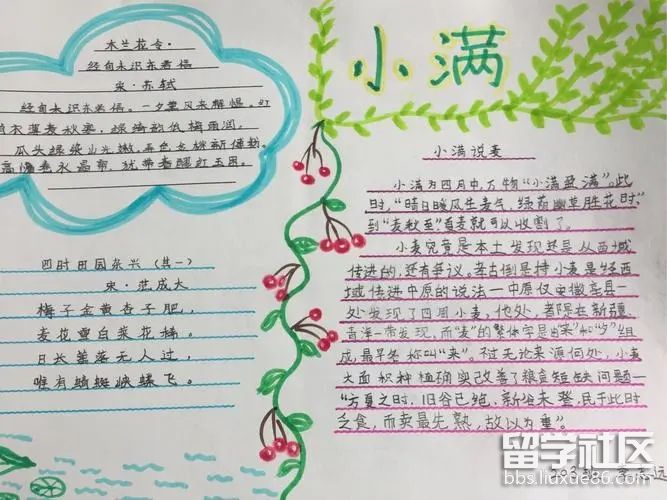 小满
木兰花令·
经旬未识东君信
宋·苏轼
经旬未识东君信。一夕薰风来解愠。红
绡衣薄麦秋寒，绿绮韵低梅雨润。
瓜头绿染山光嫩。弄色金桃新傅粉。
高慵卷水晶帘，犹带春醒红玉困。
四时田园杂兴（其一）
宋·范成大
梅子金黄杏子肥，
麦花雪白菜花稀。
日长篱落无人过，
唯有蜻蜓蛱蝶飞。
小满说麦
小满为四月中，万物“小满盈满”。此
时，“晴日暖风生麦气，绿荫幽草胜花时，”
到“麦秋至”夏麦就可以收割了。
小麦究竟是本土发现还是从西域
传进的，还有争议。考古倒是持小麦是经西
域传进中原的说法—中原仅安徽亳县一
处发现了四周小麦，他处，者限在新疆
青海一带发现，而“麦”的繁体字是由“来”和“夕”组
成，最早竺称叫“来”。不过无论来源何处，小麦
大面积种植确实改善了粮食短缺问题—
“方夏之时，旧谷已绝，新谷未登，民于此时
乏食，而卖最先熟，故以为重”。
503班
留学社区
bbs.liuxue86.com